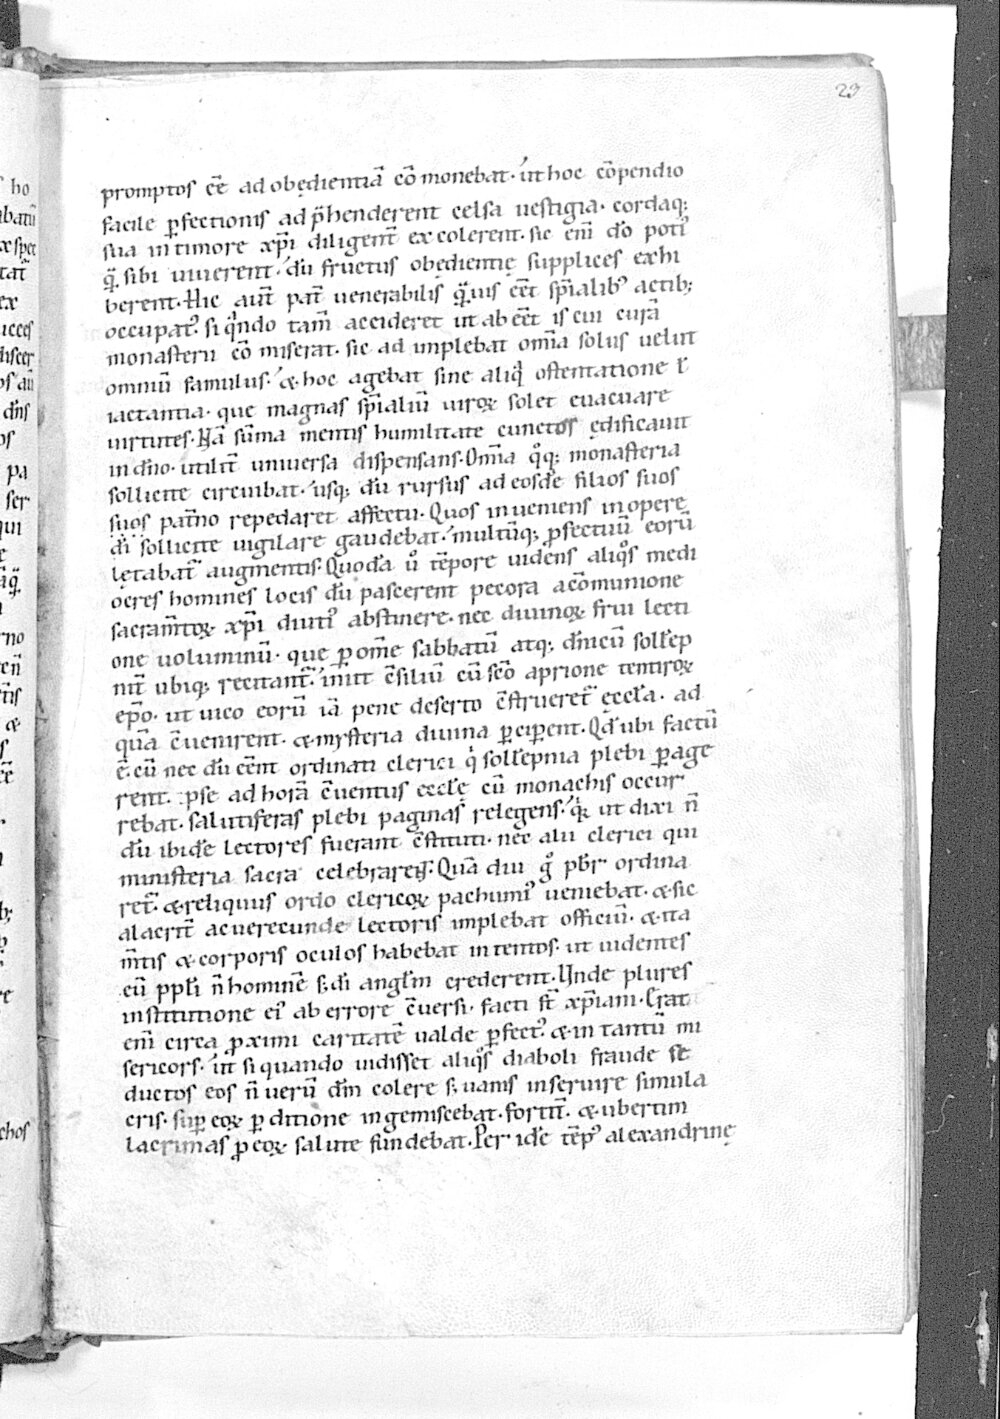 23
promptos eē ad obędientiā cōmonebat· ut hoc cōpendio
facile pfectionis ad p̄henderent celsa uestigia· cordaq;
sua in timore xp̄i diligent̄ excolerent· sic eni̅ dō poti᾽
q̄ sibi uiuerent· dū fructus obędientię supplices exhi
berent· Hic aut̄ pat̄ uenerabilis q̄uis eēt sp̄ialib᾽ actib;
occupat᾽ si q̄ndo tam̄ accideret ut abeēt is cui curā
monasterii cōmiserat· sic adimplebat om̄ia solus uelut
omniū famulus· & hoc agebat sine aliq̄ ostentatione ł
iactantia· que magnas sp̄ialiū uiroꝝ solet euacuare
uirtutes· Nā sūma mentis humilitate cunctos ędificauit
in dn̄o· utilit̄ uniuersa dispensans· Om̄ia q°q; monasteria
sollicite circuibat· usq; dū rursus ad eosdē filios suos
suos pat̄no repedaret affectu· Quos inueniens in opere
dī sollicite uigilare gaudebat· multūq; pfectuū eorū
lętabat̄ augmentis· Quodā u° tēpore uidens aliq°s medi
ocres homines locis dū pascerent pecora a cōmunione
sacram̄toꝝ xp̄i diuti᾽ abstinere· nec diuinoꝝ frui lecti
one uoluminū· que p om̄e sabbatū atq; dn̄icū sollēp
nit̄ ubiq; recitant̄· iniit c̄siliū cū sc̄o aprione tentiroꝝ
ep̄o· ut uico eorū iā pene deserto c̄strueret̄ ęcclā· ad
quā c̄uenirent· & mysteria diuina pciperent· Qđ ubi factū
ē· cū nec dū eēnt ordinati clerici q̇ sollēpnia plebi page
rent· ipse ad horā c̄uentus ecclę cū monachis occur
rebat· salutiferas plebi paginas relegens· q̇ ut dixi n̄
dū ibidē lectores fuerant c̄stituti· nec alii clerici qui
ministeria sacra celebrarent· Quā diu g° pbr̄ ordina
ret̄· & reliquus ordo clericoꝝ pachumi᾽ ueniebat· & sic
alacrit̄ ac uerecunde lectoris implebat officiū· & ita
m̄tis & corporis oculos habebat intentos· ut uidentes
eū ppłi n̄ hominē s; dī angłm crederent· Unde plures
institutione ei᾽ ab errore c̄uersi· facti st̄ xp̄iani· Erat
eni̅ circa proximi caritatē ualde pfect᾽ & in tantū mi
sericors· ut si quando uidisset aliq°s diaboli fraude se
ductos eos n̄ uerū dm̄ colere s; uanis inseruire simula
cris· sup eoꝝ pditione ingemiscebat· fortit̄· & ubertim
lacrimas p eoꝝ salute fundebat· Per idē tēp᾽ alexandrinę